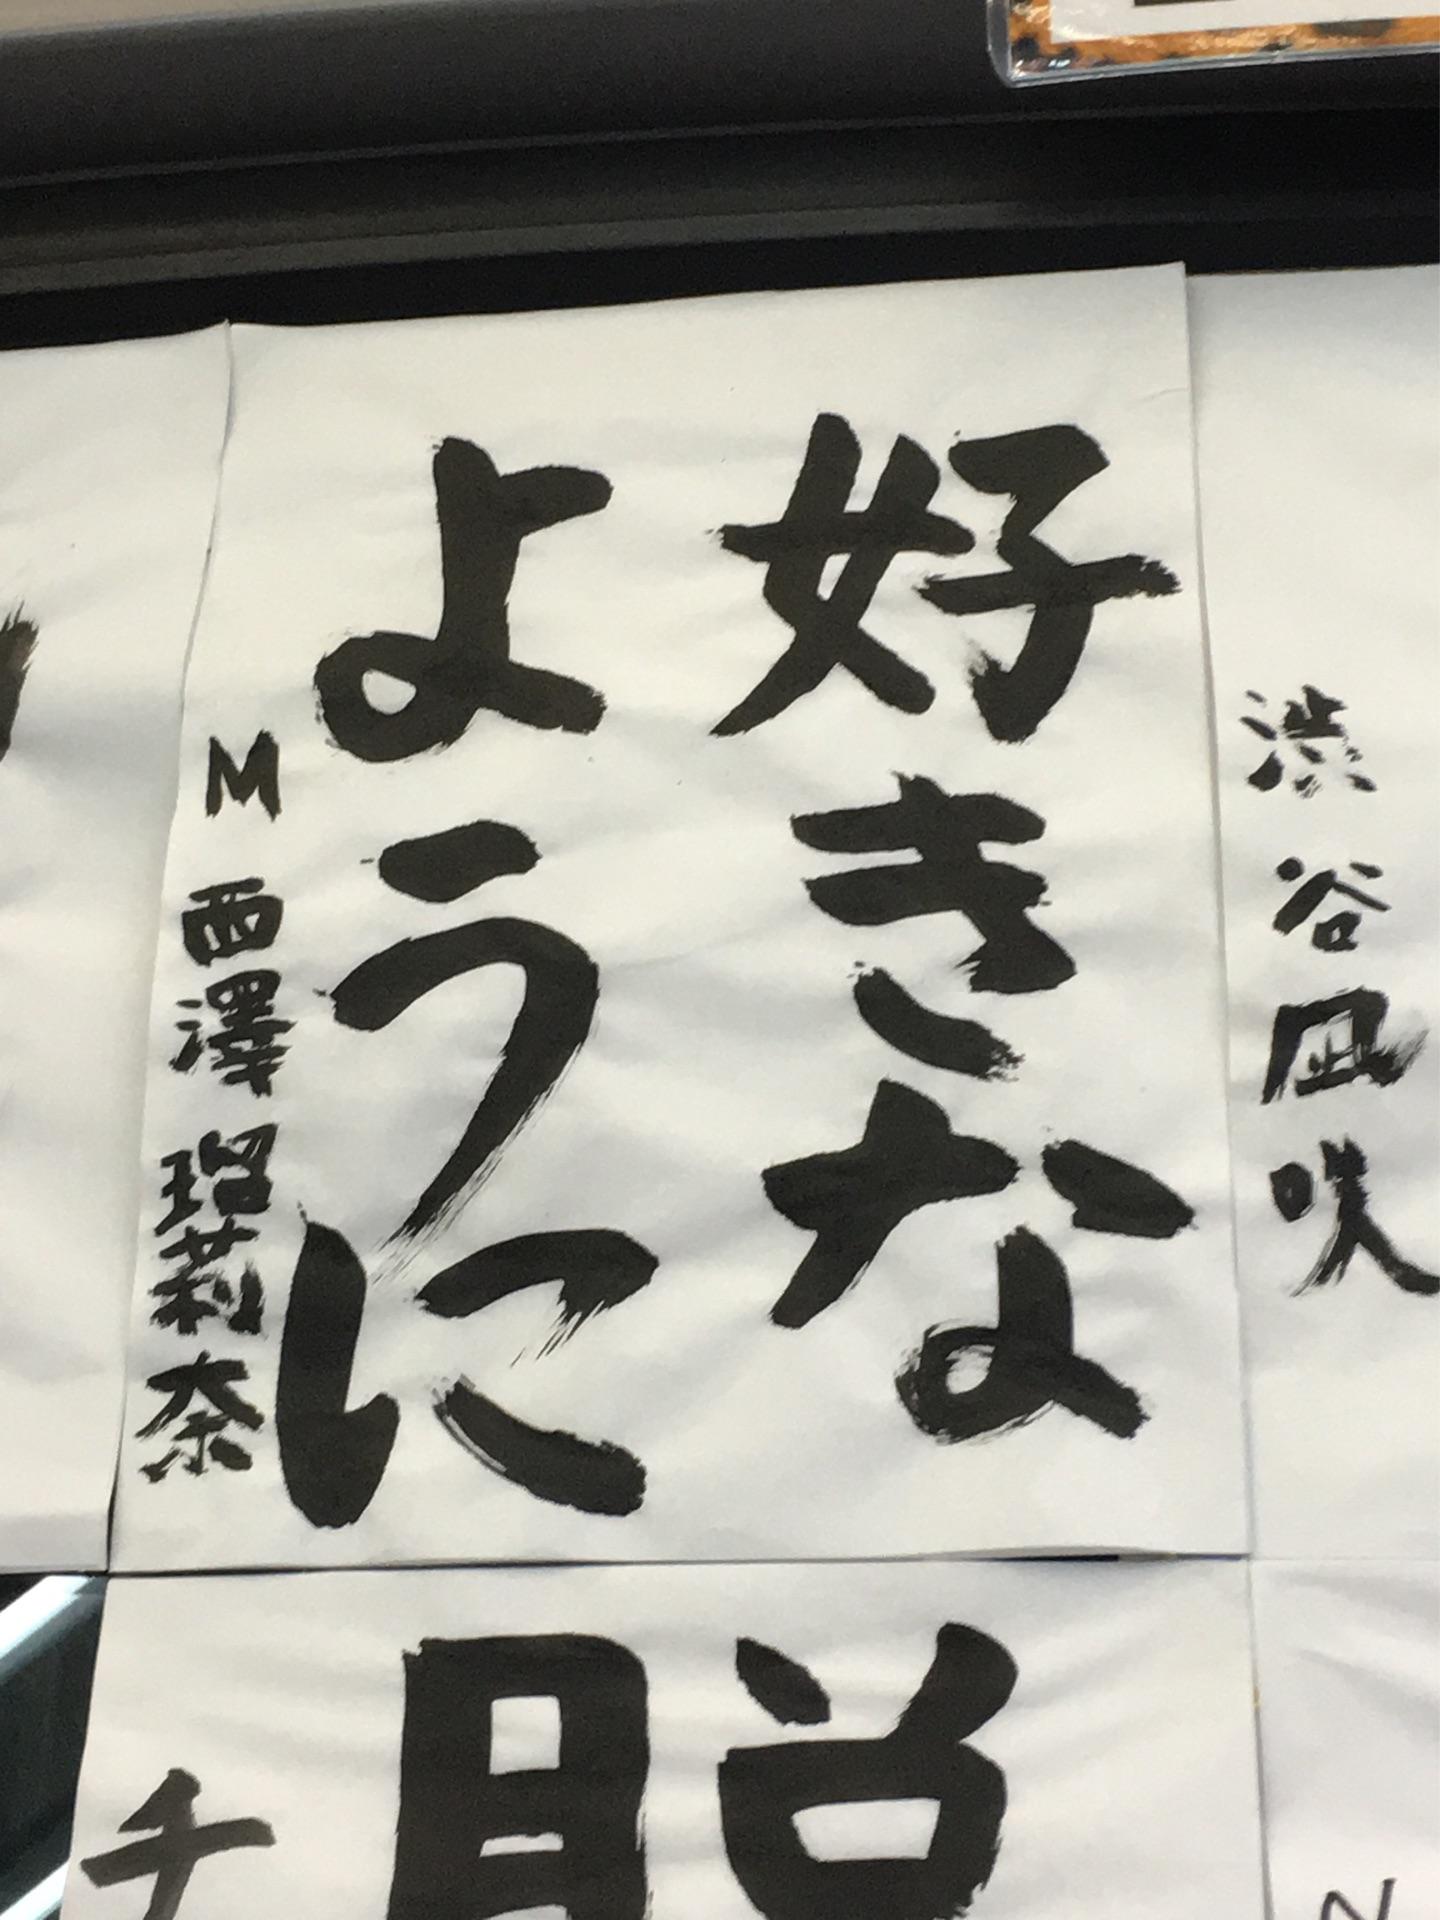 渋谷凪咲
好きな
ように
M 西澤瑠莉奈
チ
N